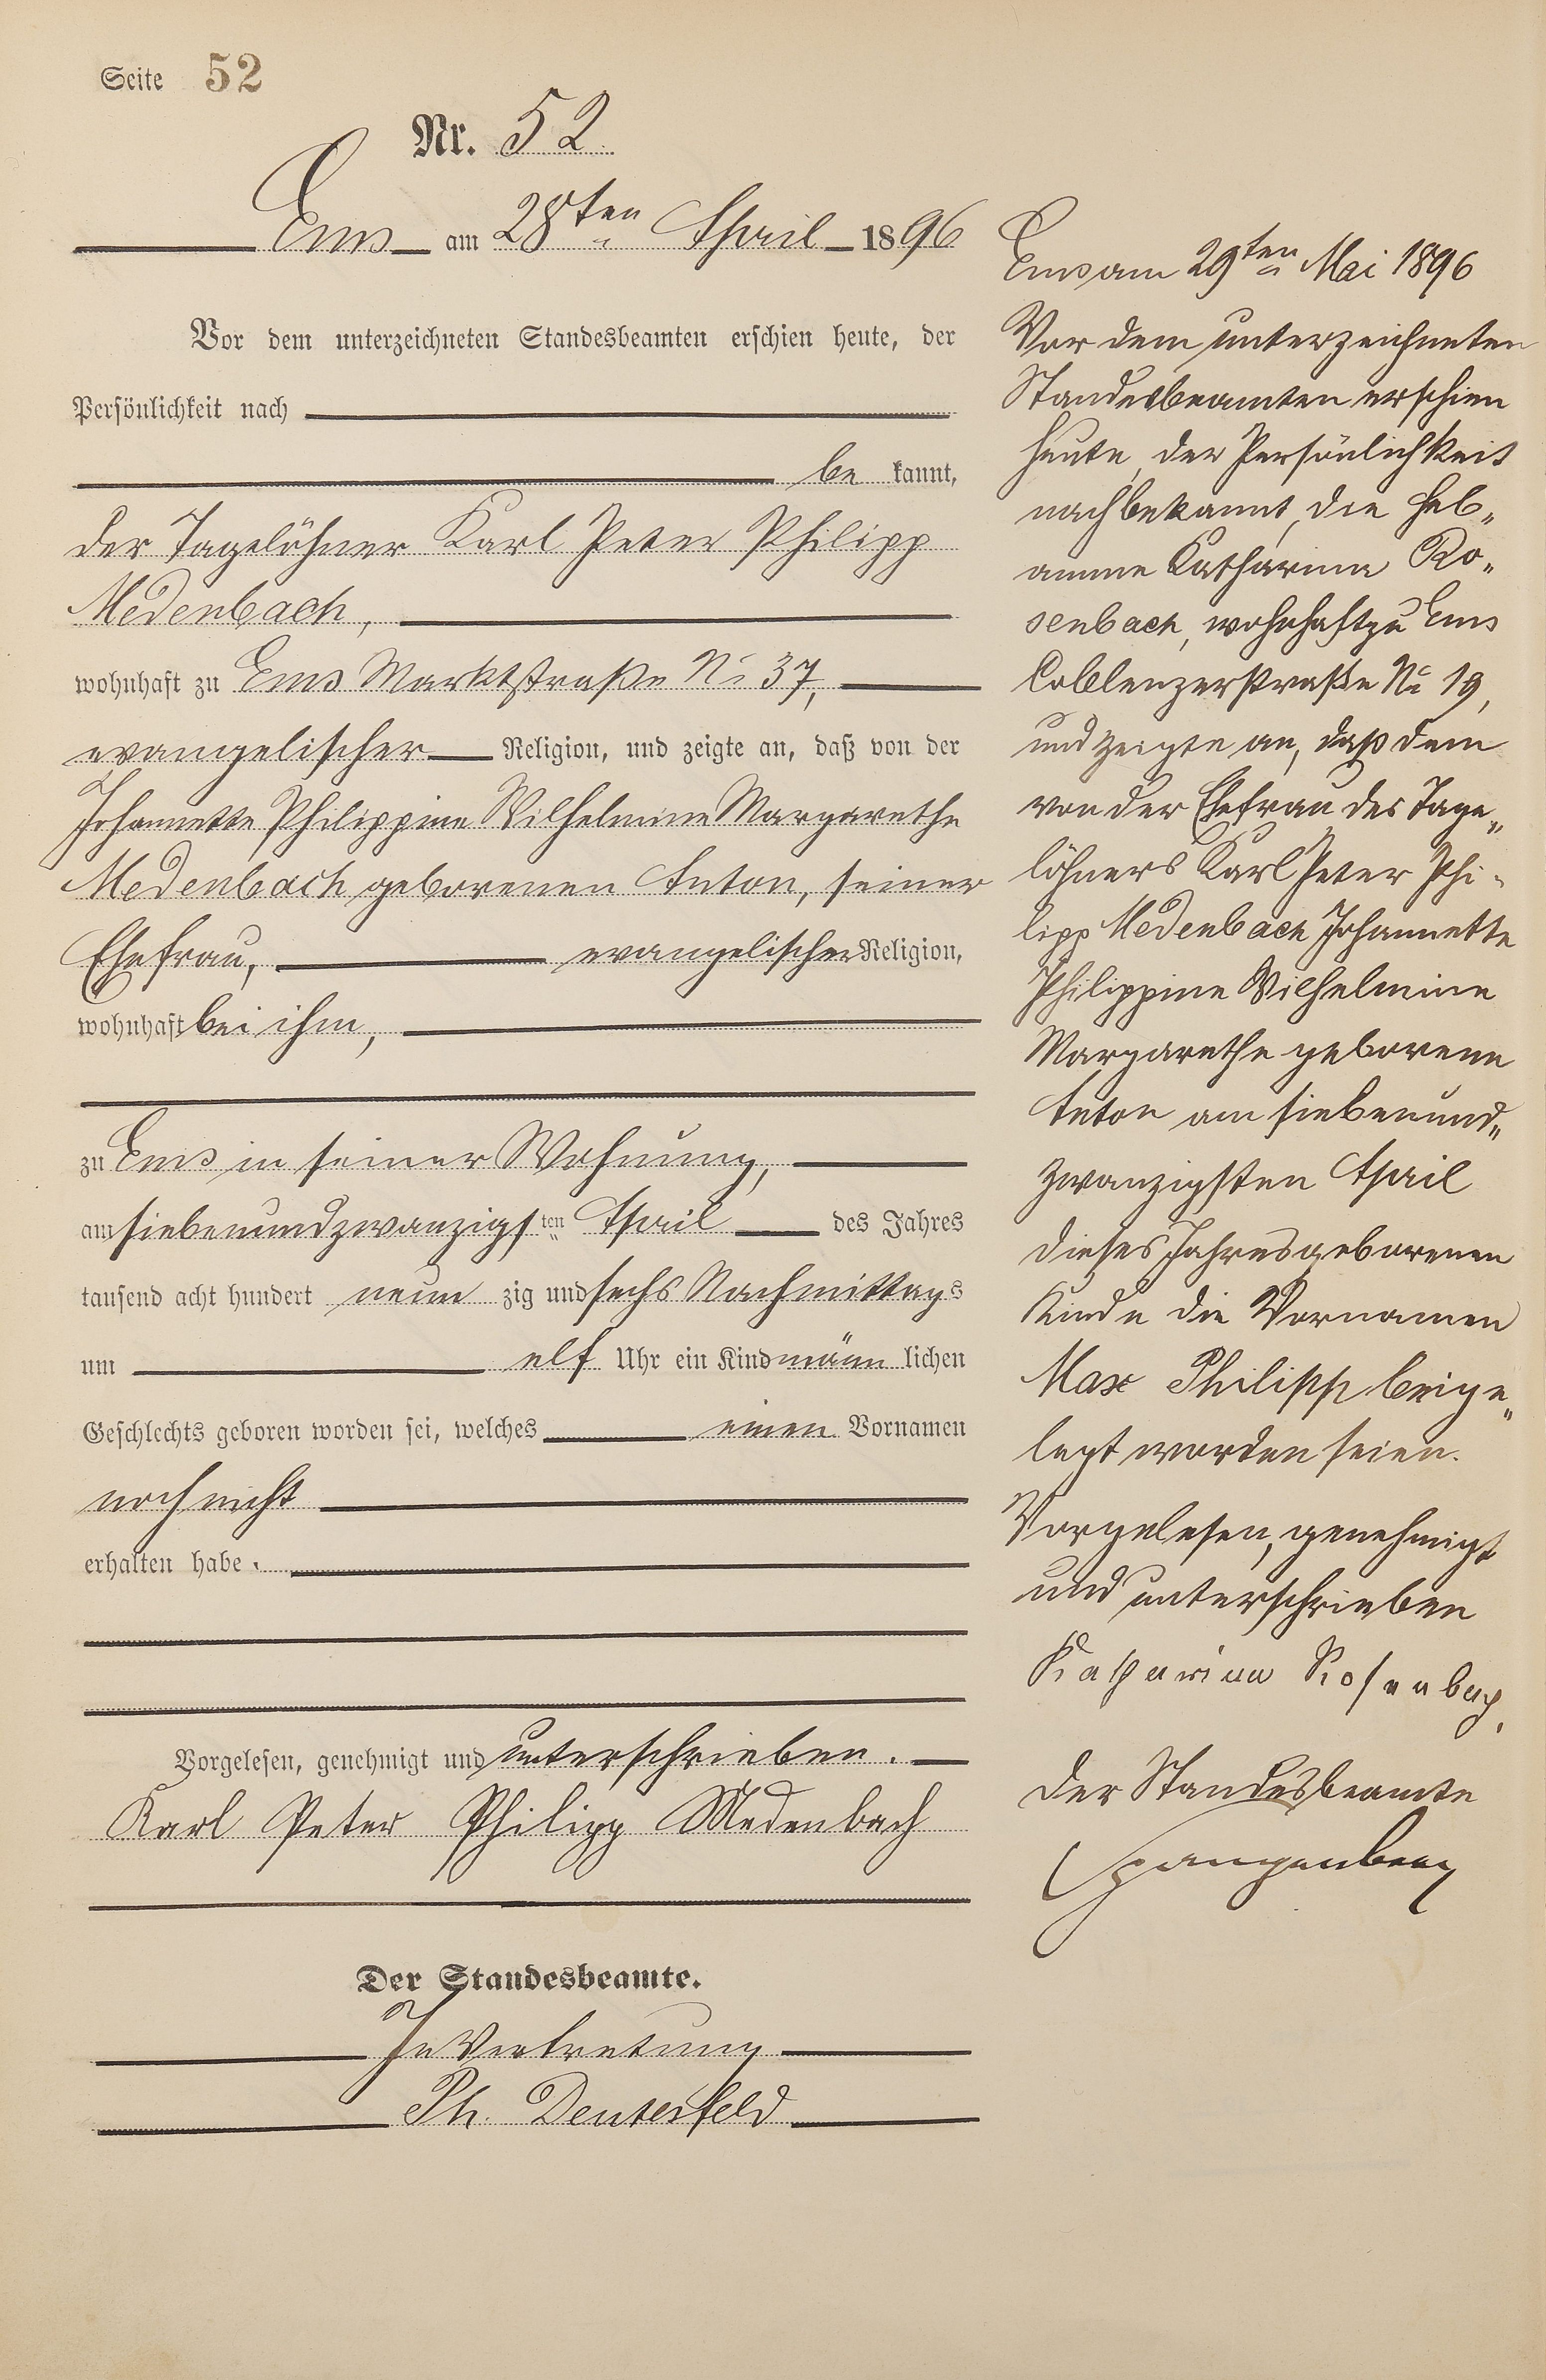 Seite 52
Nr. 52
Ems am 28ten April 1896
Vor dem unterzeichneten Standesbeamten erschien heute, der
Persönlichkeit nach
be kannt,
der Tagelöhner Karl Peter Philipp
Medenbach,
wohnhaft zu Ems Marktstraße No 37,
evangelischer Religion, und zeigte an, daß von der
Johannette Philippine Wilhelmine Margarethe
Medenbach geborenen Anton, seiner
Ehefrau, evangelischer Religion,
wohnhaft bei ihm,
zu Ems in seiner Wohnung,
am siebenundzwanzigsten April des Jahres
tausend acht hundert neun zig und sechs Nachmittags
um elf Uhr ein Kind männ lichen
Geschlechts geboren worden sei, welches einen Vornamen
noch nicht
erhalten habe.
Vorgelesen, genehmigt und unterschrieben.
Karl Peter Philipp Medenbach
Der Standesbeamte.
In Vertretung
Ph. Deutesfeld
Ems am 29ten Mai 1896
Vor dem unterzeichneten
Standesbeamten erschien
heute, der Persönlichkeit
nach bekannt, die Heb„
amme Katharina Ro„
senbach, wohnhaft zu Ems
Coblenzerstraße No 19,
und zeigte an, daß dem
von der Ehefrau des Tage„
löhners Karl Peter Phi-
lipp Medenbach Johannette
Philippine Wilhelmine
Margarethe geborene
Anton am siebenund„
zwanzigsten April
dieses Jahres geborenen
Kinde die Vornamen
Max Philipp beige„
legt worden seien.
Vorgelesen, genehmigt
und unterschrieben
Katharina Rosenbach.
Der Standesbeamte
Spangenberg